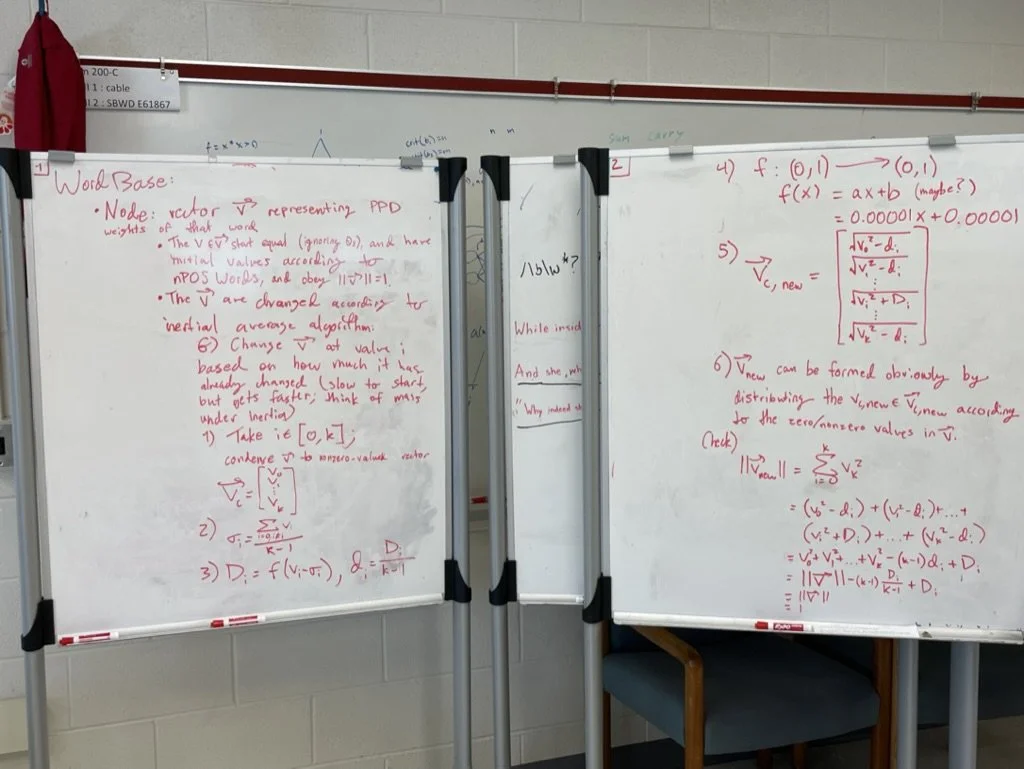 200-C
1 : cable
2 : SBWD E61867
f = x*x>0
n m
Sum Carry
1
Word Base:
• Node: vector v⃗ representing PPD
weights of that word
• The v ∈ v⃗ start equal (ignoring 0s), and have
initial values according to
nPOS words, and obey ||v⃗|| = 1.
• The v⃗ are changed according to
inertial average algorithm:
Change v⃗ at value i
based on how much it has
already changed (slow to start,
but gets faster; think of mass
under inertia)
1) Take i ∈ [0, k];
condense v⃗ to nonzero-valued vector
v⃗c = [v₀ v₁ ⋮ vₖ]
2) σᵢ = Σ vᵢ / k-1
3) Dᵢ = f(vᵢ - σᵢ), dᵢ = Dᵢ / k-1
/\b\w*?
While insid
And she, wh
"Why indeed
2
4) f : (0,1) ⟶ (0,1)
f(x) = ax+b (maybe?)
= 0.00001x + 0.00001
5) v⃗c, new = [√v₀² - dᵢ √v₁² - dᵢ ⋮ √vᵢ² + Dᵢ ⋮ √vₖ² - dᵢ]
6) v⃗new can be formed obviously by
distributing the vc,new ∈ v⃗c,new according
to the zero/nonzero values in v⃗.
Check)
||v⃗new|| = Σ i=0 k vₖ²
= (v₀² - dᵢ) + (v₁² - dᵢ) + ... +
(vᵢ² + Dᵢ) + ... + (vₖ² - dᵢ)
= v₀² + v₁² + ... + vₖ² - (k-1)dᵢ + Dᵢ
= ||v⃗|| - (k-1) Dᵢ / k-1 + Dᵢ
= ||v⃗||
= 1
EXPO